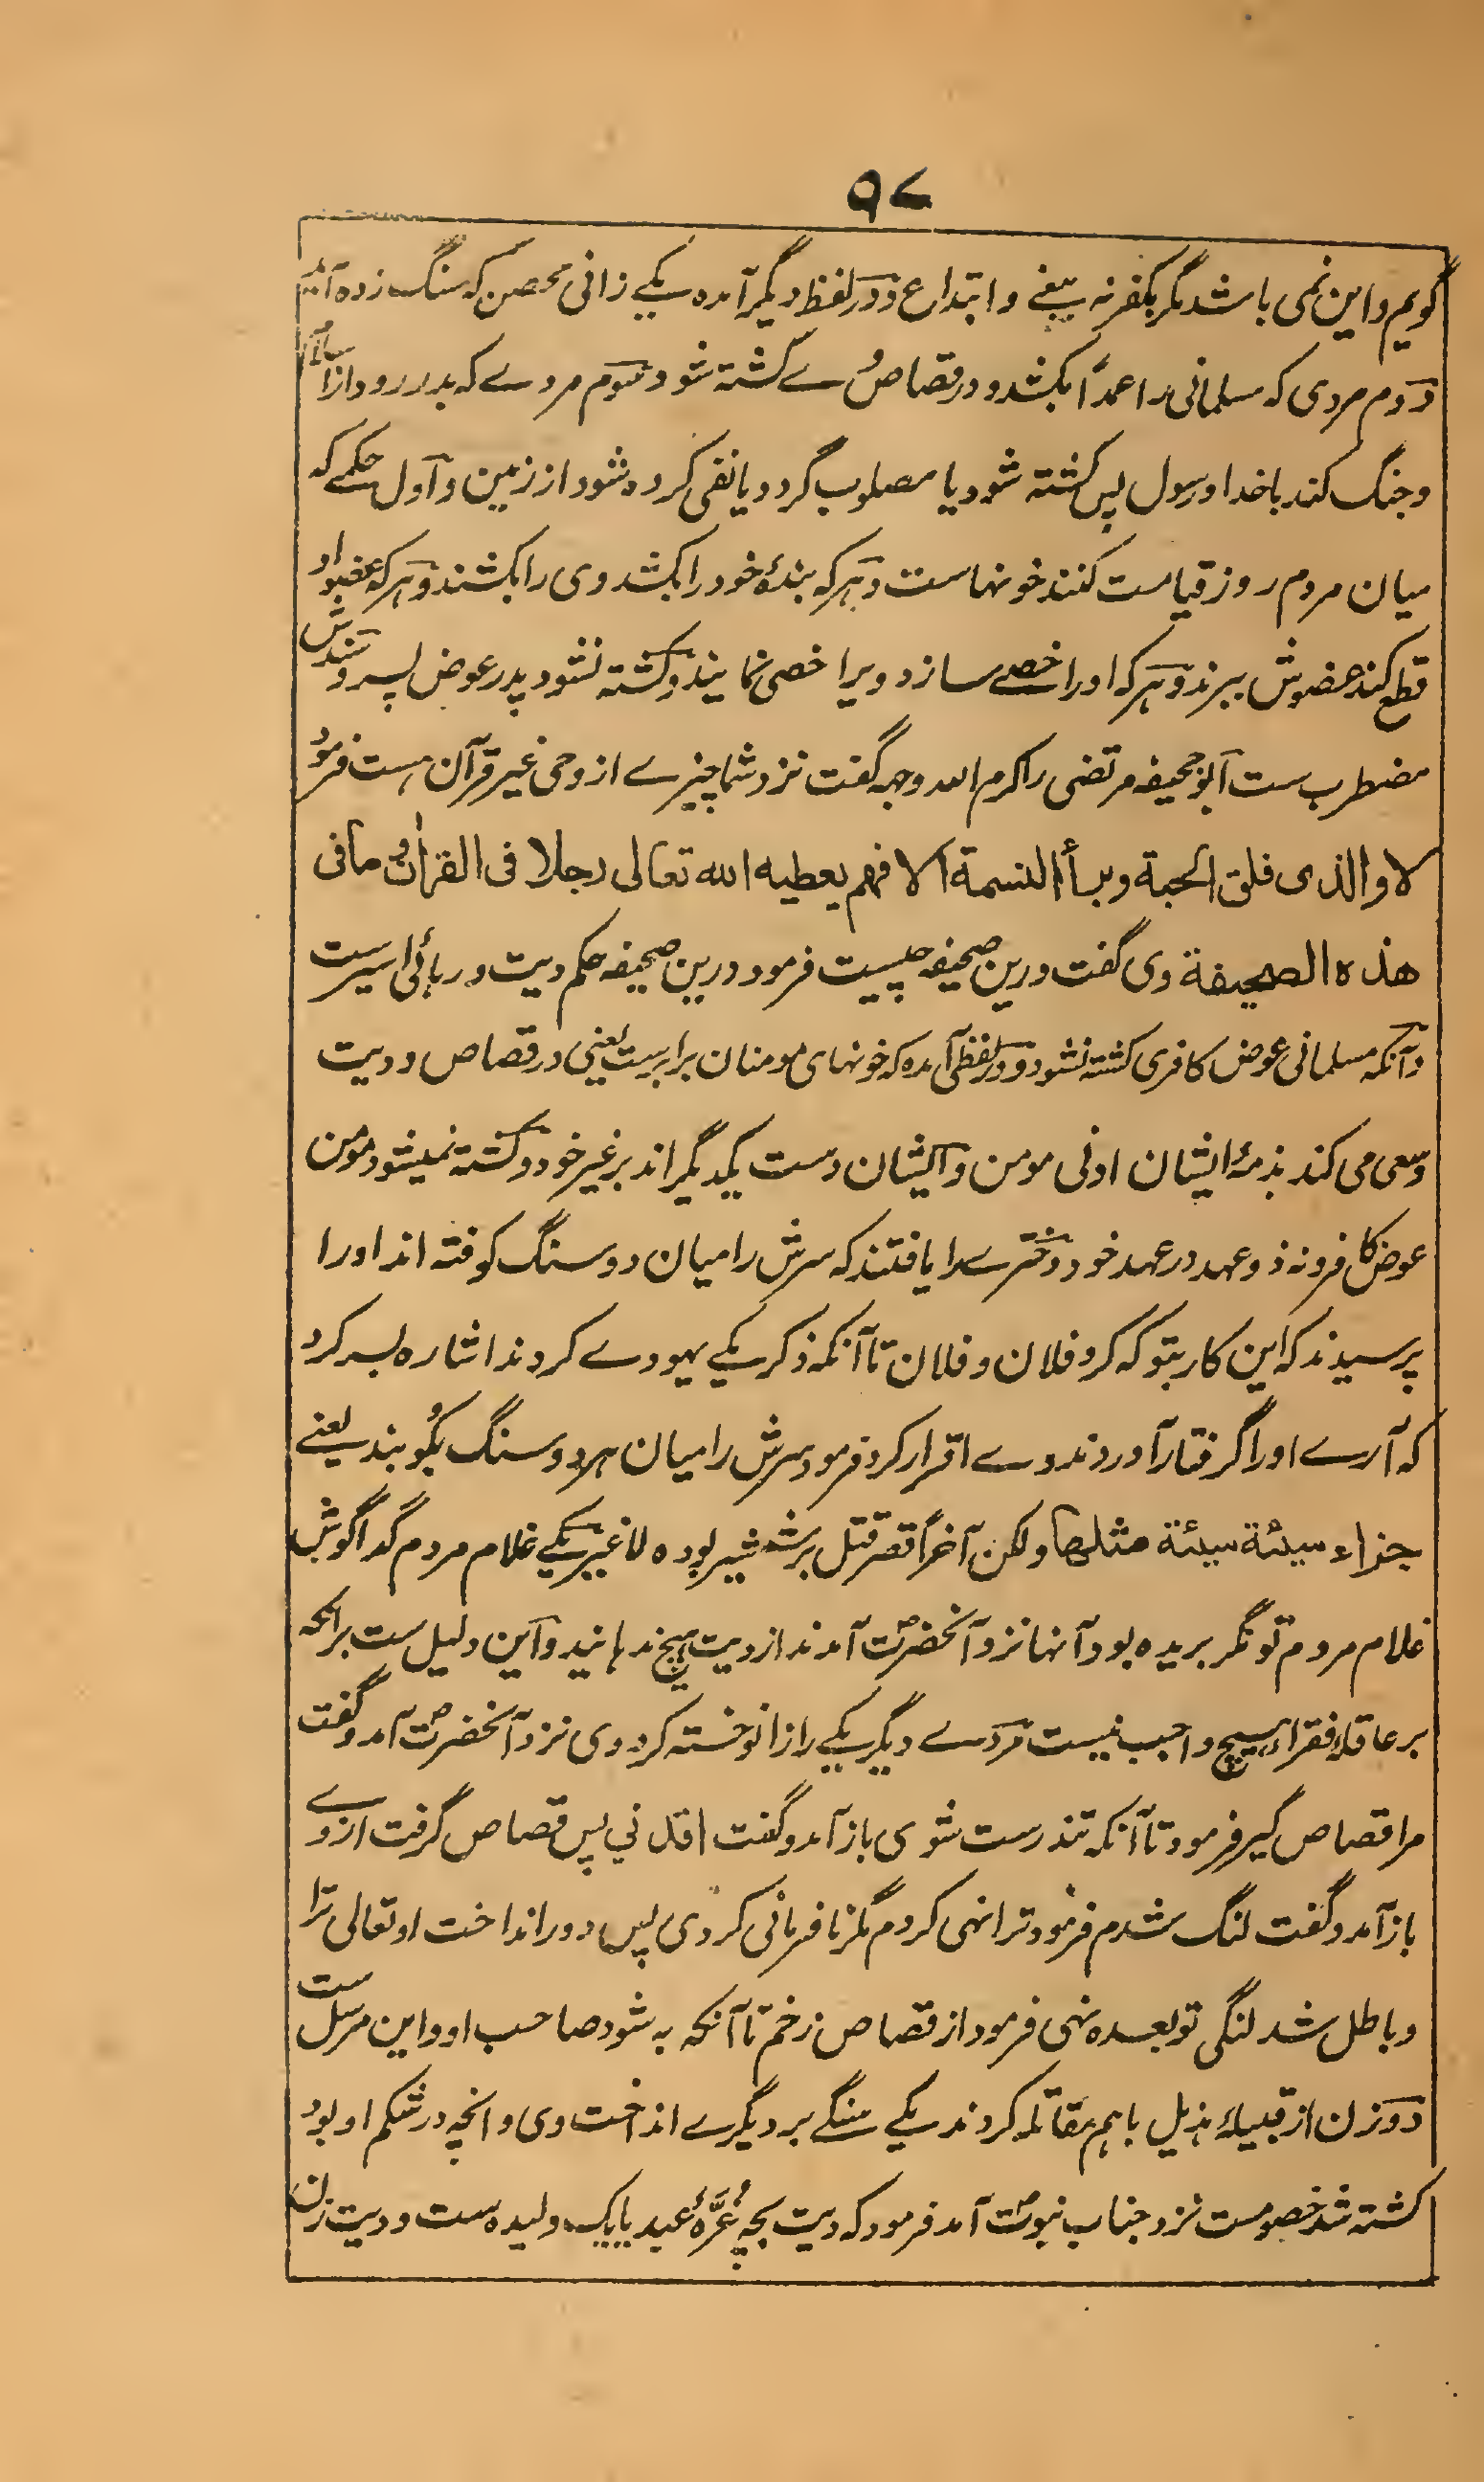 ۹۷
گویم و این نمی باشد مگر بکفر نہ ببغی و ابتداع و در لفظ دیگر آمده یکے زانی محصن کہ سنگ زده آید
دوم مردی کہ مسلمانی را عمداً بکشد و در قصاص وے کشتہ شود سوم مردے کہ بدر رود از اسلام
و جنگ کند با خدا و رسول پس کشتہ شود یا مصلوب گردد یا نفی کرده شود از زمین و اول حکمے کہ
میان مردم روز قیامت کنند خونهاست و ہر کہ بندهٔ خود را بکشد وی را بکشند و ہر کہ عضو او
قطع کند عضوش ببرند و ہر کہ او را خصے سازد ویرا خصی نمایند و کشتہ نشود پدر عوض پسر و سندش
مضطرب ست ابو جحیفہ مرتضی را کرم الله وجہہ گفت نزد شما چیزے از وحی غیر قرآن ہست فرمود
لا والذی فلق الحبة وبرأ النسمة الا فهم یعطیه الله تعالی رجلا فی القرآن وما فی
هذه الصحیفة وی گفت درین صحیفہ چیست فرمود درین صحیفہ حکم دیت و رہائی اسیرست
و آنکہ مسلمانی عوض کافری کشتہ نشود و در لفظی آمده کہ خونهای مومنان برابرست یعنی در قصاص و دیت
و سعی می کند بذمهٔ ایشان ادنی مومن و ایشان دست یکدیگراند بر غیر خود و کشتہ نمیشود مومن
عوض کافر و نہ ذو عهد در عهد خود دخترے را یافتند کہ سرش را میان دو سنگ کوفتہ اند او را
پرسیدند کہ این کار بتو کہ کرد فلان و فلان تا آنکہ ذکر یکے یهودے کردند اشاره بسر کرد
کہ آرے او را گرفتار آوردند وے اقرار کرد فرمود سرش را میان ہر دو سنگ بکوبند یعنے
جزاء سیئة سیئة مثلها و لکن آخراً قصر قتل بر شمشیر بوده لا غیر یکے غلام مردم گدا گوش
غلام مردم تونگر بریده بود آنها نزد آنحضرت آمدند از دیت ہیچ ندهانید و این دلیل ست بر آنکہ
بر عاقلهٔ فقراء ہیچ واجب نیست مردے دیگر یکے را زانو خستہ کرد وی نزد آنحضرت آمد و گفت
مرا قصاص گیر فرمود تا آنکہ تندرست شوی باز آمد و گفت اقدنی پس قصاص گرفت از وے
باز آمد و گفت لنگ شدم فرمود ترا نهی کردم مگر نافرمانی کردی پس دور انداخت او تعالی ترا
و باطل شد لنگی تو بعده نهی فرمود از قصاص زخم تا آنکہ بہ شود صاحب او و این مرسل ست
دو زن از قبیلهٔ ہذیل باہم مقاتلہ کردند یکے سنگے بر دیگرے انداخت وی و انچہ در شکم او بود
کشتہ شد خصومت نزد جناب نبوت آمد فرمود کہ دیت بچہ غُرّهٔ عبد یا یک ولیده ست و دیت زن